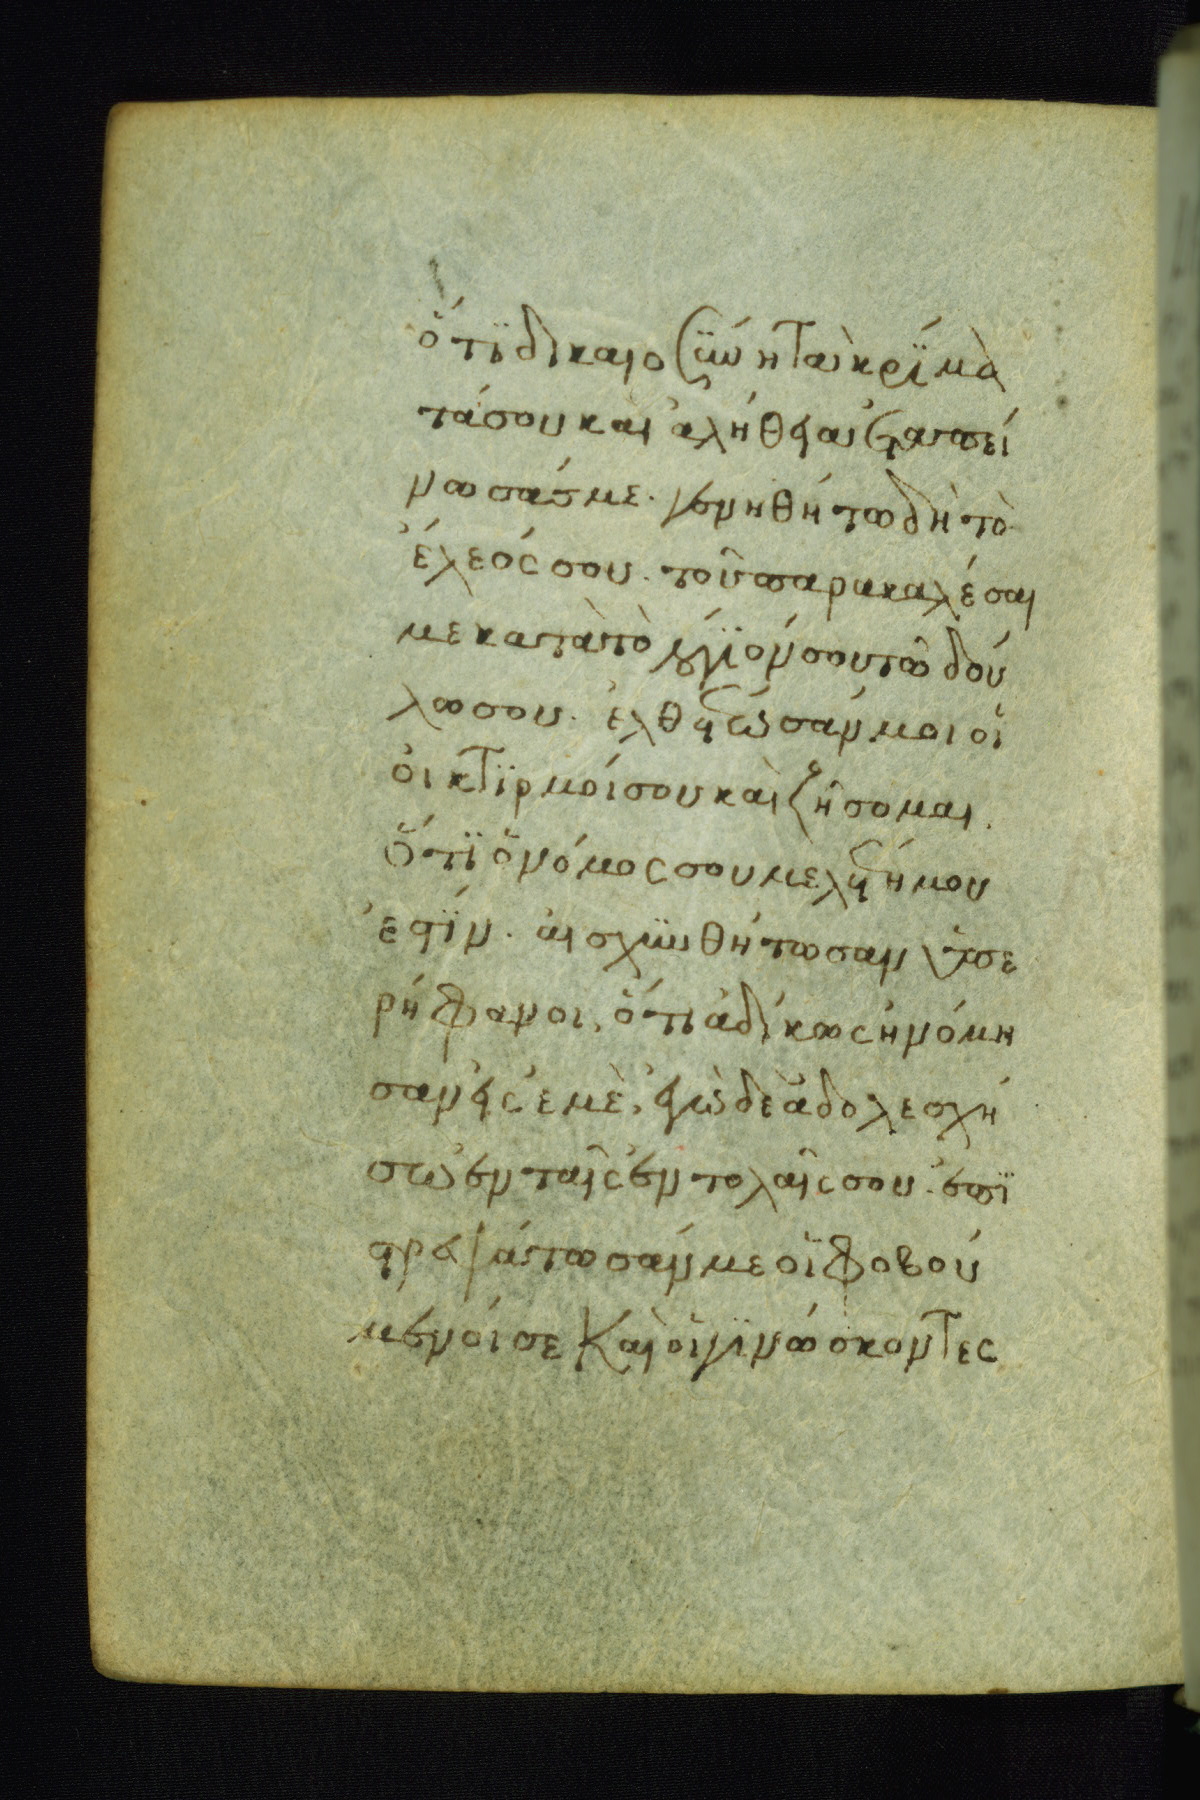 ὅτϊ δικαιοσϋνη τὰ κρϊμα
τά σου καὶ ἀληθεία ἐταπεί
νωσάς με. γενηθήτω δὴ τὸ
ἔλεός σου. τοῦ παρακαλέσαι
με κατὰ τὸ λόγϊόν σου τῶ δού
λω σου. ἐλθέτωσάν μοι οἱ
οἰκτϊρμοί σου καὶ ζήσομαι.
Ὅτϊ ὁ νόμος σου μελέτη μου
ἐστϊν. αἰσχϋνθήτωσαν ὑπε
ρήφανοι, ὅτι ἀδίκως ἠνόμη
σαν εἰς ἐμὲ, ἐγὼ δὲ ἀδολεσχή
σω ἐν ταῖς ἐντολαῖς σου. ἐπϊ
στρεψάτωσάν με οἱ φοβού
μενοί σε Καὶ οἱ γϊνώσκοντες